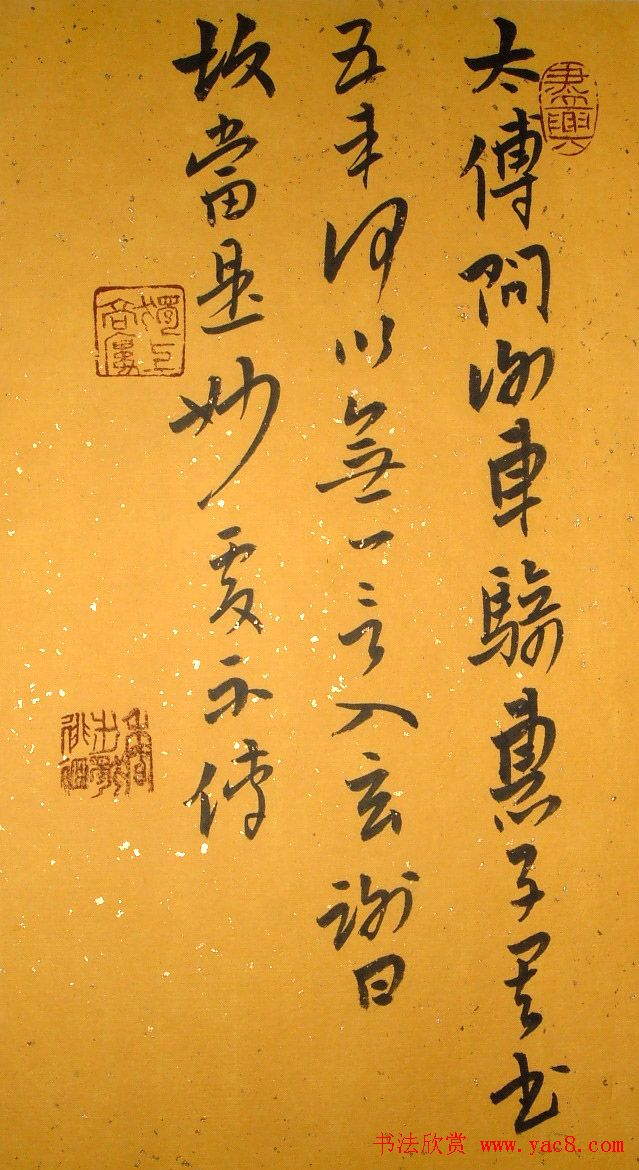 太傅問謝車騎惠子其書
五車何以無一言入玄謝曰
故當是妙處不傳
书法欣赏 www.yac8.com